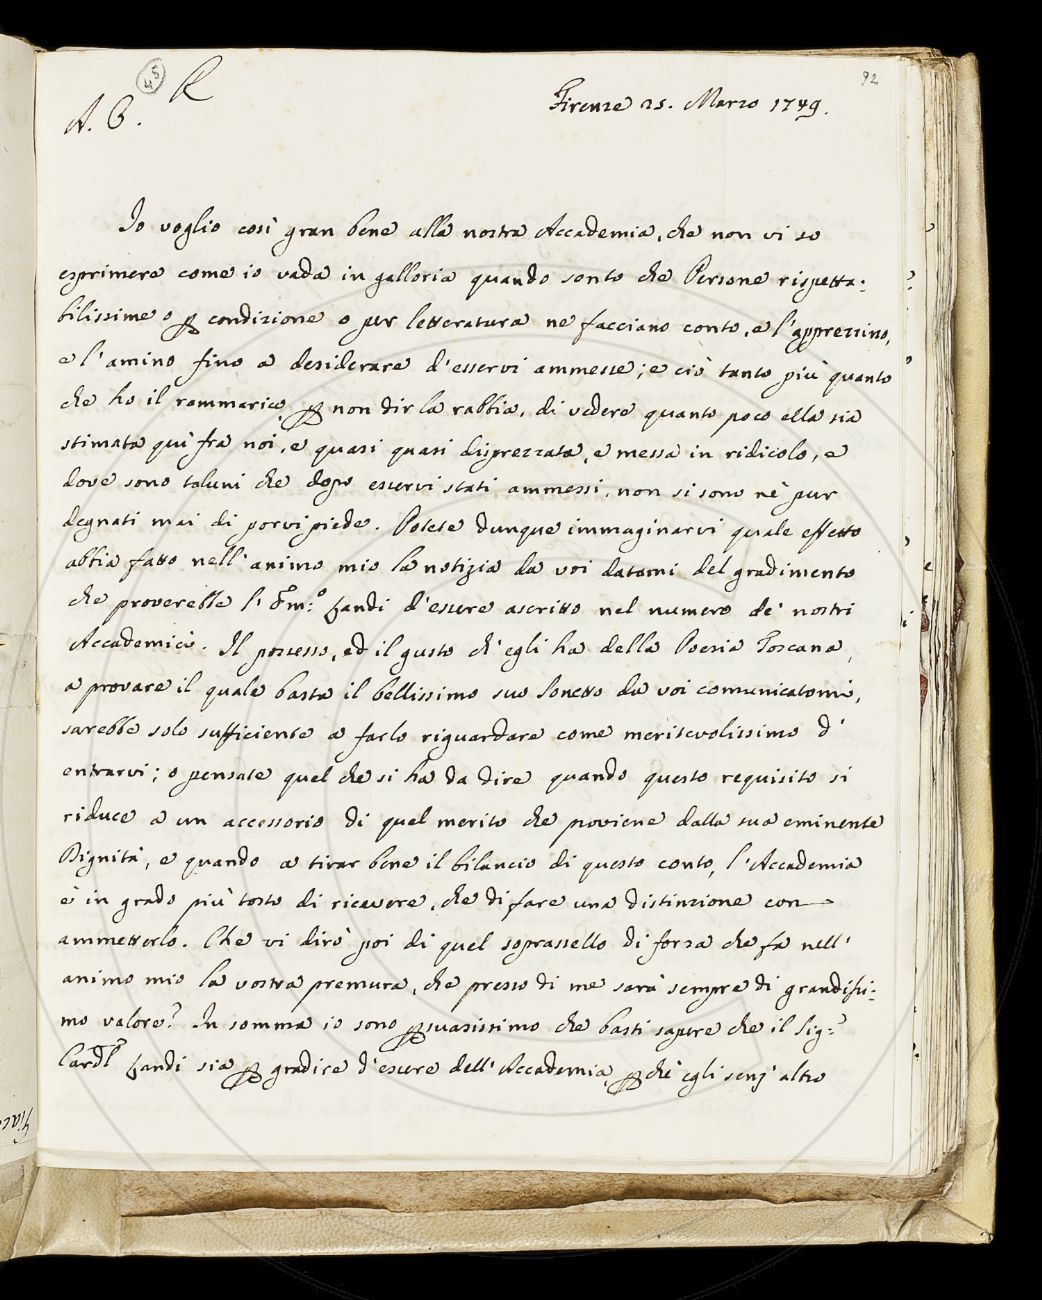 45 R 92
A. C. Firenze 25. Marzo 1749.
Io voglio così gran bene alla nostra Accademia, che non vi so
esprimere come io vada in galloria quando sento che Persone rispetta:
bilissime o p condizione o per letteratura ne facciano conto, e l'apprezzino,
e l'amino fino a desiderare d'esservi ammesse; e ciò tanto più quanto
che ho il rammarico, p non dir la rabbia, di vedere quanto poco ella sia
stimata quì fra noi, e quasi quasi disprezzata, e messa in ridicolo, e
dove sono taluni che dopo esservi stati ammessi, non si sono nè pur
degnati mai di porvi piede. Potete dunque immaginarvi quale effetto
abbia fatto nell'animo mio la notizia da voi datami del gradimento
che proverebbe l'Em:o Landi d'essere ascritto nel numero de' nostri
Accademici. Il possesso, ed il gusto ch'egli ha della Poesia Toscana,
a provare il quale basta il bellissimo suo Sonetto da voi comunicatomi,
sarebbe solo sufficiente a farlo riguardare come meritevolissimo d'
entrarvi; o pensate quel che si ha da dire quando questo requisito si
riduce a un accessorio di quel merito che proviene dalla sua eminente
Dignità, e quando a tirar bene il bilancio di questo conto, l'Accademia
è in grado più tosto di ricevere, che di fare una distinzione con
ammetterlo. Che vi dirò poi di quel soprassello di forza che fa nell'
animo mio la vostra premura, che presso di me sarà sempre di grandissi:
mo valore? In somma io sono psuasissimo che basti sapere che il Sig:r
Cardl Landi sia p gradire d'essere dell'Accademia, p chè egli senz'altro